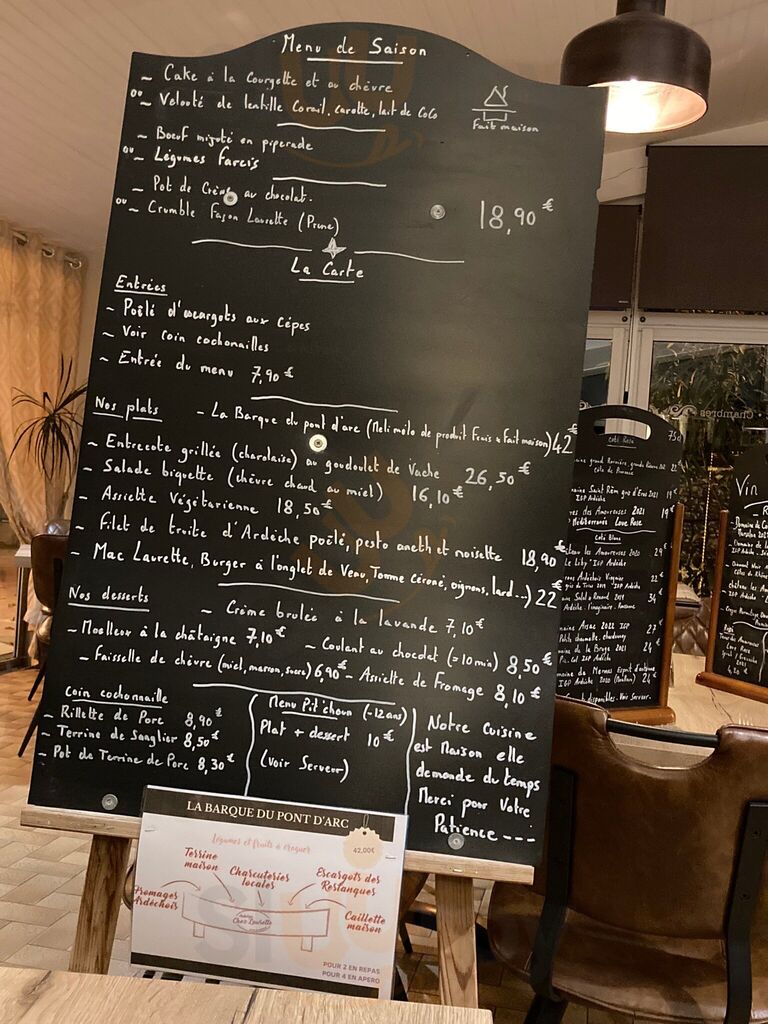 Menu de Saison
~ Cake à la Courgette et au chèvre
ou
~ Velouté de lentille Corail, carotte, lait de CoCo
Fait maison
~ Bœuf mijoté en piperade
ou
~ Légumes Farcis
~ Pot de Crème au chocolat.
ou
~ Crumble Façon Laurette (Prune)
18,90 €
La Carte
Entrées
~ Poêlé d'escargots aux Cépes
~ Voir coin cochonailles
~ Entrée du menu 7,90 €
Nos plats
~ La Barque du pont d'arc (Meli mélo de produit Frais & Fait maison) 42 €
~ Entrecote grillée (charolaise) au goudoulet de Vache 26,50 €
~ Salade biquette (chèvre chaud au miel) 16,10 €
~ Assiette Végétarienne 18,50 €
~ Filet de truite d'Ardèche poêlé, pesto aneth et noisette 18,90 €
~ Mac Laurette, Burger à l'onglet de Veau, Tomme Céroné, oignons, lard...) 22 €
Nos desserts
~ Crème brulée à la lavande 7,10 €
~ Moelleux à la châtaigne 7,10 € ~ Coulant au chocolat (=10 min) 8,50 €
~ Faisselle de chèvre (miel, marron, sucre) 6,90 € ~ Assiette de Fromage 8,10 €
Coin cochonnaille
~ Rillette de Porc 8,90 €
~ Terrine de Sanglier 8,50 €
~ Pot de Terrine de Porc 8,30 €
Menu Pit'choun (-12 ans)
Plat + dessert 10 €
(Voir Serveur)
Notre Cuisine
est Maison elle
demande du temps
Merci pour Votre
Patience ---
LA BARQUE DU PONT D'ARC
42,00€
Légumes et fruits à croquer
Terrine
maison
Charcuteries
locales
Escargots des
Restanques
Fromages
Ardéchois
Caillette
maison
Chez Laurette
POUR 2 EN REPAS
POUR 4 EN APERO
Chambres
Coté Rosé
75cl
Côtes de Provence
22
IGP Ardèche
19 €
des Amoureuses 2021
19 €
Méditerranée Love Rose
Coté Blanc
les Amoureuses 2020
24 €
IGP Ardèche
22 €
34
27 €
24 €
24 €
Vin